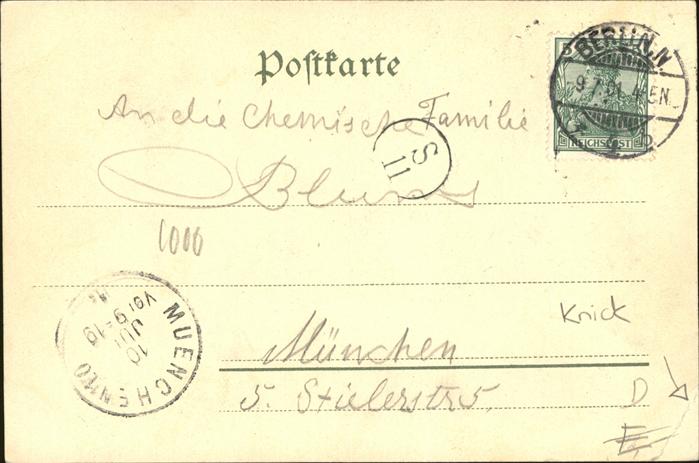 Postkarte
BERLIN.N.
9.7.01.4-5N.
REICHSPOST
An die Chemische Familie
S
11
Blum
1000
MUENCHEN
JUL
10
Vor 9-10
Knick
München
5. Stielerstr 5.
D
E